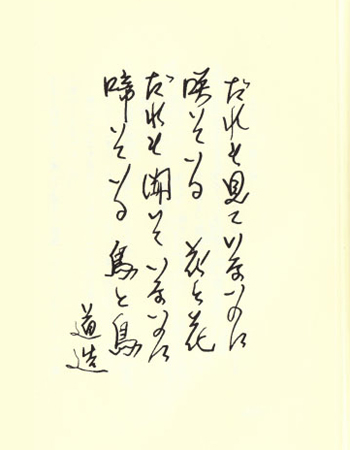 だれも見ていないのに
咲いてゐる 花と花
だれも聞いていないのに
啼いてゐる 鳥と鳥
道造